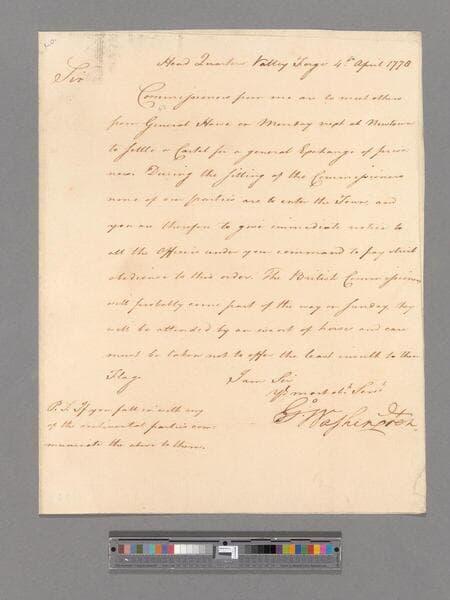 Head Quarters Valley Forge 4th April 1778
Sir
Commissioners from me are to meet others
from General Howe on Monday next at Newtown
to settle a Cartel for a general Exchange of prison
ners. During the sitting of the Commissioners
none of our parties are to enter the Town, and
you are therefore to give immediate notice to
all the Officers under your command to pay strict
obedience to this order. The British Commissioners
will probably come part of the way on Sunday they
will be attended by an escort of horse and care
must be taken not to offer the least insult to their
Flag.
I am Sir
Yr. most obt. Servt.
Go Washington
P.S. If you fall in with any
of the continental parties com-
municate the above to them.